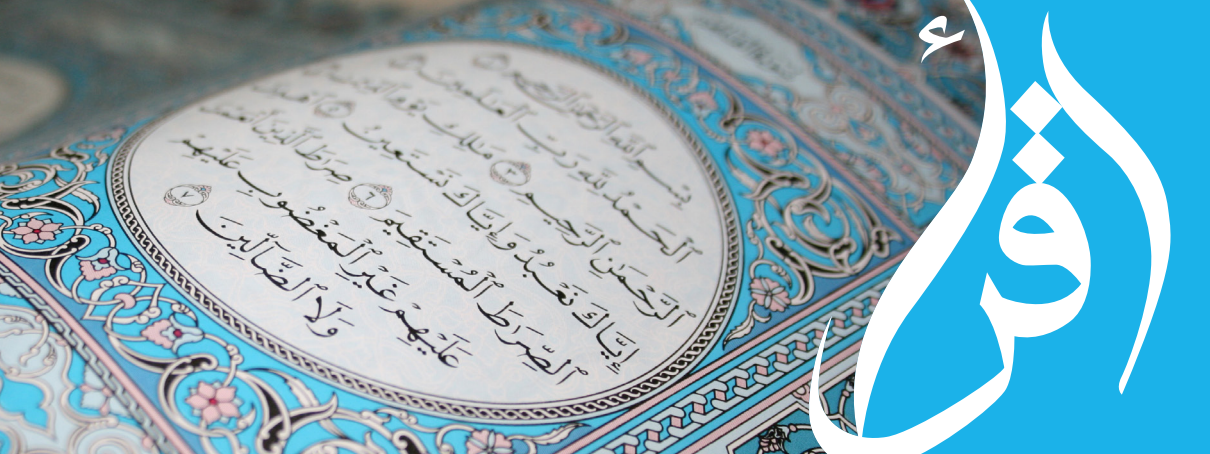 بِسْمِ ٱللَّهِ ٱلرَّحْمَٰنِ ٱلرَّحِيمِ
ٱلْحَمْدُ لِلَّهِ رَبِّ ٱلْعَٰلَمِينَ
ٱلرَّحْمَٰنِ ٱلرَّحِيمِ ٣ مَٰلِكِ يَوْمِ ٱلدِّينِ
إِيَّاكَ نَعْبُدُ وَإِيَّاكَ نَسْتَعِينُ ٥ ٱهْدِنَا
ٱلصِّرَٰطَ ٱلْمُسْتَقِيمَ ٦ صِرَٰطَ ٱلَّذِينَ أَنْعَمْتَ
عَلَيْهِمْ غَيْرِ ٱلْمَغْضُوبِ عَلَيْهِمْ
وَلَا ٱلضَّآلِّينَ ٧
اقرأ